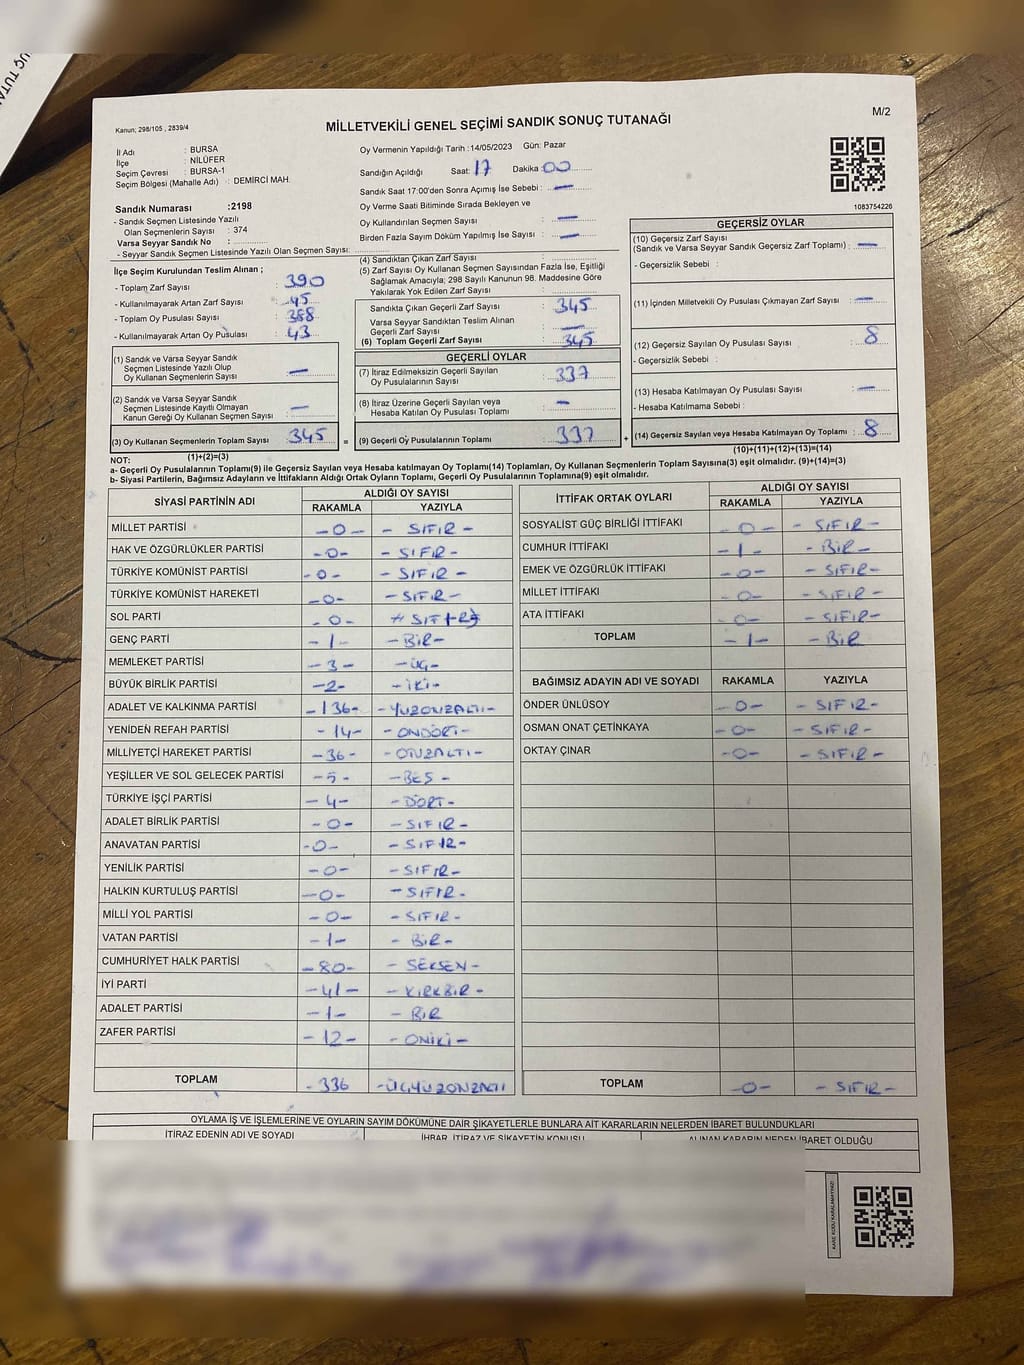 M/2
Kanun; 298/105 , 2839/4
MİLLETVEKİLİ GENEL SEÇİMİ SANDIK SONUÇ TUTANAĞI
İl Adı : BURSA
İlçe : NİLÜFER
Seçim Çevresi : BURSA-1
Seçim Bölgesi (Mahalle Adı) : DEMİRCİ MAH.
Sandık Numarası :2198
- Sandık Seçmen Listesinde Yazılı
Olan Seçmenlerin Sayısı : 374
Varsa Seyyar Sandık No :
- Seyyar Sandık Seçmen Listesinde Yazılı Olan Seçmen Sayısı:
Oy Vermenin Yapıldığı Tarih :14/05/2023 Gün: Pazar
Sandığın Açıldığı Saat: 17 Dakika :00
Sandık Saat 17:00'den Sonra Açılmış İse Sebebi : —
Oy Verme Saati Bitiminde Sırada Bekleyen ve
Oy Kullandırılan Seçmen Sayısı : —
Birden Fazla Sayım Döküm Yapılmış İse Sayısı : —
1083754226
İlçe Seçim Kurulundan Teslim Alınan ;
- Toplam Zarf Sayısı : 390
- Kullanılmayarak Artan Zarf Sayısı : 45
- Toplam Oy Pusulası Sayısı : 388
- Kullanılmayarak Artan Oy Pusulası : 43
(1) Sandık ve Varsa Seyyar Sandık
Seçmen Listesinde Yazılı Olup
Oy Kullanan Seçmenlerin Sayısı : —
(2) Sandık ve Varsa Seyyar Sandık
Seçmen Listesinde Kayıtlı Olmayan
Kanun Gereği Oy Kullanan Seçmen Sayısı : —
(3) Oy Kullanan Seçmenlerin Toplam Sayısı : 345 =
(1)+(2)=(3)
(4) Sandıktan Çıkan Zarf Sayısı :
(5) Zarf Sayısı Oy Kullanan Seçmen Sayısından Fazla İse, Eşitliği
Sağlamak Amacıyla; 298 Sayılı Kanunun 98. Maddesine Göre
Yakılarak Yok Edilen Zarf Sayısı :
Sandıkta Çıkan Geçerli Zarf Sayısı : 345
Varsa Seyyar Sandıktan Teslim Alınan
Geçerli Zarf Sayısı : —
(6) Toplam Geçerli Zarf Sayısı : 345
GEÇERLİ OYLAR
(7) İtiraz Edilmeksizin Geçerli Sayılan
Oy Pusulalarının Sayısı : 337
(8) İtiraz Üzerine Geçerli Sayılan veya
Hesaba Katılan Oy Pusulası Toplamı : —
(9) Geçerli Oy Pusulalarının Toplamı : 337 +
GEÇERSİZ OYLAR
(10) Geçersiz Zarf Sayısı
(Sandık ve Varsa Seyyar Sandık Geçersiz Zarf Toplamı) : —
- Geçersizlik Sebebi :
(11) İçinden Milletvekili Oy Pusulası Çıkmayan Zarf Sayısı : —
(12) Geçersiz Sayılan Oy Pusulası Sayısı : 8
- Geçersizlik Sebebi :
(13) Hesaba Katılmayan Oy Pusulası Sayısı : —
- Hesaba Katılmama Sebebi :
(14) Geçersiz Sayılan veya Hesaba Katılmayan Oy Toplamı : 8
(10)+(11)+(12)+(13)=(14)
NOT:
a- Geçerli Oy Pusulalarının Toplamı(9) ile Geçersiz Sayılan veya Hesaba katılmayan Oy Toplamı(14) Toplamları, Oy Kullanan Seçmenlerin Toplam Sayısına(3) eşit olmalıdır. (9)+(14)=(3)
b- Siyasi Partilerin, Bağımsız Adayların ve İttifakların Aldığı Ortak Oyların Toplamı, Geçerli Oy Pusulalarının Toplamına(9) eşit olmalıdır.
SİYASİ PARTİNİN ADI ALDIĞI OY SAYISI
RAKAMLA YAZIYLA
MİLLET PARTİSİ -0- - SIFIR -
HAK VE ÖZGÜRLÜKLER PARTİSİ -0- - SIFIR -
TÜRKİYE KOMÜNİST PARTİSİ -0- - SIFIR -
TÜRKİYE KOMÜNİST HAREKETİ -0- - SIFIR -
SOL PARTİ -0- SIFIR
GENÇ PARTİ -1- - BİR -
MEMLEKET PARTİSİ -3- - ÜÇ -
BÜYÜK BİRLİK PARTİSİ -2- - İKİ -
ADALET VE KALKINMA PARTİSİ -136- -YÜZOTUZALTI-
YENİDEN REFAH PARTİSİ -14- -ONDÖRT-
MİLLİYETÇİ HAREKET PARTİSİ -36- -OTUZALTI-
YEŞİLLER VE SOL GELECEK PARTİSİ -5- -BEŞ-
TÜRKİYE İŞÇİ PARTİSİ -4- -DÖRT-
ADALET BİRLİK PARTİSİ -0- -SIFIR-
ANAVATAN PARTİSİ -0- -SIFIR-
YENİLİK PARTİSİ -0- -SIFIR-
HALKIN KURTULUŞ PARTİSİ -0- -SIFIR-
MİLLİ YOL PARTİSİ -0- -SIFIR-
VATAN PARTİSİ -1- -BİR-
CUMHURİYET HALK PARTİSİ -80- -SEKSEN-
İYİ PARTİ -41- -KIRKBİR-
ADALET PARTİSİ -1- -BİR
ZAFER PARTİSİ -12- -ONİKİ-
TOPLAM -336
İTTİFAK ORTAK OYLARI ALDIĞI OY SAYISI
RAKAMLA YAZIYLA
SOSYALİST GÜÇ BİRLİĞİ İTTİFAKI -0- -SIFIR-
CUMHUR İTTİFAKI -1- -BİR-
EMEK VE ÖZGÜRLÜK İTTİFAKI -0- -SIFIR-
MİLLET İTTİFAKI -0- -SIFIR-
ATA İTTİFAKI -0- -SIFIR-
TOPLAM -1- -BİR
BAĞIMSIZ ADAYIN ADI VE SOYADI RAKAMLA YAZIYLA
ÖNDER ÜNLÜSOY -0- -SIFIR-
OSMAN ONAT ÇETİNKAYA -0- -SIFIR-
OKTAY ÇINAR -0- -SIFIR-
TOPLAM -0- -SIFIR-
OYLAMA İŞ VE İŞLEMLERİNE VE OYLARIN SAYIM DÖKÜMÜNE DAİR ŞİKAYETLERLE BUNLARA AİT KARARLARIN NELERDEN İBARET BULUNDUKLARI
İTİRAZ EDENİN ADI VE SOYADI İHBAR, İTİRAZ VE ŞİKAYETİN KONUSU ALINAN KARARIN NEDEN İBARET OLDUĞU
KARE KODU KARALAMAYINIZ!